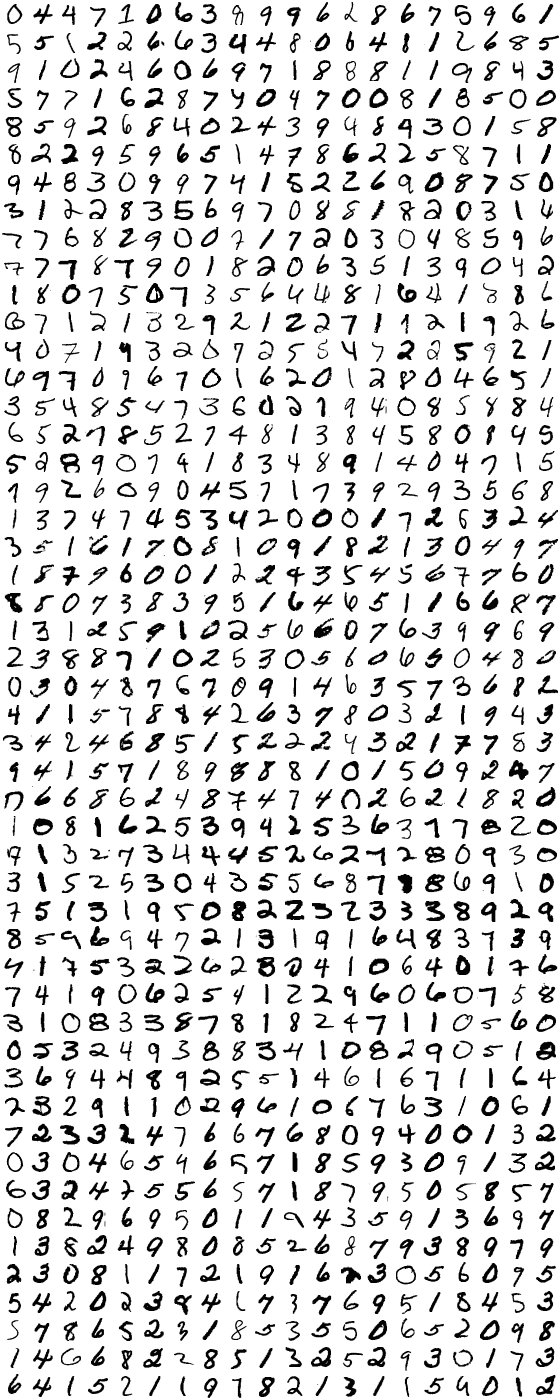 0 4 4 7 1 0 6 3 8 9 9 6 2 8 6 7 5 9 6 1
5 5 1 2 2 6 6 3 4 4 8 0 6 4 8 1 2 6 8 5
9 1 0 2 4 6 0 6 9 7 1 8 8 8 1 1 9 8 4 3
5 7 7 1 6 2 8 7 9 0 4 7 0 0 8 1 8 5 0 0
8 5 9 2 6 8 4 0 2 4 3 9 4 8 9 3 0 1 5 8
8 2 2 9 5 9 6 5 1 4 7 8 6 2 2 5 8 7 1 1
9 4 8 3 0 9 9 7 4 1 5 2 2 6 9 0 8 7 5 0
3 1 2 2 8 3 5 6 9 7 0 8 8 1 8 2 0 3 1 6
7 7 6 8 2 9 0 0 7 1 7 2 0 3 0 4 8 5 9 6
7 7 7 8 7 9 0 1 8 2 0 6 3 5 1 3 9 0 4 2
1 8 0 7 5 0 7 3 5 6 4 4 8 1 6 4 1 8 8 6
6 7 1 2 1 3 2 9 2 1 2 2 7 1 1 2 1 9 2 6
4 0 7 1 9 3 2 0 7 2 5 5 4 7 2 2 5 9 2 1
6 9 7 0 9 6 7 0 1 6 2 0 1 2 8 0 4 6 5 1
3 5 4 8 5 4 7 3 6 0 2 1 9 4 0 8 5 8 8 4
6 5 2 7 8 5 2 7 4 8 1 3 8 4 5 8 0 8 4 5
5 2 8 9 0 7 9 1 8 3 4 8 9 1 4 0 4 7 1 5
1 9 2 6 0 9 9 0 4 5 7 1 7 3 9 2 9 3 5 6 8
1 3 7 4 7 4 5 3 4 2 0 0 0 1 7 2 6 3 2 4
3 5 1 6 1 7 0 8 1 0 9 1 8 2 1 3 0 4 9 7
1 8 7 9 6 0 0 1 2 2 4 3 5 4 5 6 7 7 6 0
8 5 0 7 3 8 3 9 5 1 6 4 6 5 1 1 6 6 8 7
1 3 1 2 5 9 1 0 2 5 6 6 0 7 6 3 9 9 6 9
2 3 8 8 7 1 0 2 5 3 0 5 6 0 6 5 0 4 8 0
0 3 0 4 8 7 6 7 0 9 1 4 6 3 5 7 3 6 8 2
4 1 1 5 7 8 8 4 2 6 3 7 8 0 3 2 1 9 4 3
3 4 2 4 6 8 5 1 5 2 2 2 4 3 2 1 7 7 8 3
9 4 1 5 7 1 8 9 8 8 8 1 0 1 5 0 9 2 4 7
7 6 6 8 6 2 4 8 7 4 7 4 0 2 6 2 1 8 2 0
1 0 8 1 6 2 5 3 9 4 2 5 3 6 3 7 7 8 2 0
9 1 3 2 7 3 4 4 4 5 2 6 2 7 2 8 0 9 3 0
3 1 5 2 5 3 0 4 3 5 5 6 8 7 9 8 6 9 1 0
7 5 1 3 1 9 5 0 8 2 2 3 2 3 3 3 8 9 2 9
8 5 9 6 9 4 7 2 1 3 1 9 1 6 4 8 3 7 3 9
4 1 7 5 3 2 2 6 2 8 0 4 1 0 6 4 0 1 7 6
7 4 1 9 0 6 2 5 4 1 2 2 9 6 0 6 0 7 5 8
3 1 0 8 3 3 8 7 8 1 8 2 4 7 1 1 0 5 6 0
0 5 3 2 4 9 3 8 8 3 4 1 0 8 2 9 0 5 1 8
3 6 9 4 4 8 9 2 5 5 1 4 6 1 6 7 1 1 6 4
2 3 2 9 1 1 0 2 9 6 1 0 6 7 6 3 1 0 6 1
7 2 3 3 2 4 7 6 6 7 6 8 0 9 4 0 0 1 3 2
0 3 0 4 6 5 4 6 5 7 1 8 5 9 3 0 9 1 3 2
6 3 2 4 7 5 5 6 5 7 1 8 7 9 5 0 5 8 5 7
0 8 2 9 6 9 5 0 1 1 9 4 3 5 9 1 3 6 9 7
1 3 8 2 4 9 8 0 8 5 2 6 8 7 9 3 8 9 7 9
2 3 0 8 1 1 7 2 1 9 1 6 2 3 0 5 6 0 9 5
5 4 2 0 2 3 8 4 6 7 3 7 6 9 5 1 8 4 5 3
5 7 8 6 5 2 3 1 8 5 3 5 5 0 6 5 2 0 9 8
1 4 6 6 8 2 2 8 5 1 3 2 5 2 9 3 0 1 7 3
6 4 1 5 2 1 1 9 7 8 2 1 3 1 1 5 9 0 1 2